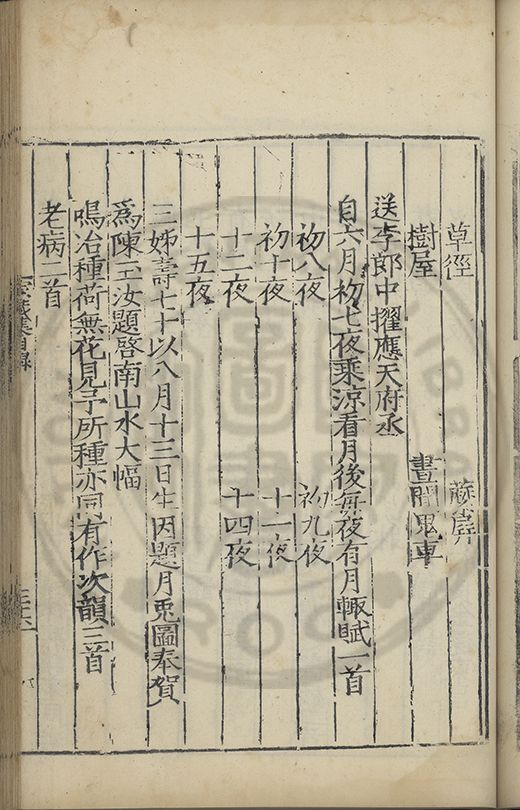 草徑 藤屏
樹屋 晝聞鬼車
送李郎中擢應天府丞
自六月初七夜乘涼看月後每夜有月輒賦一首
初八夜 初九夜
初十夜 十一夜
十二夜 十四夜
十五夜
三姊壽七十以八月十三日生因題月兎圖奉賀
為陳玉汝題啓南山水大幅
鳴治種荷無花見予所種亦同有作次韻三首
老病二首
家藏集目録